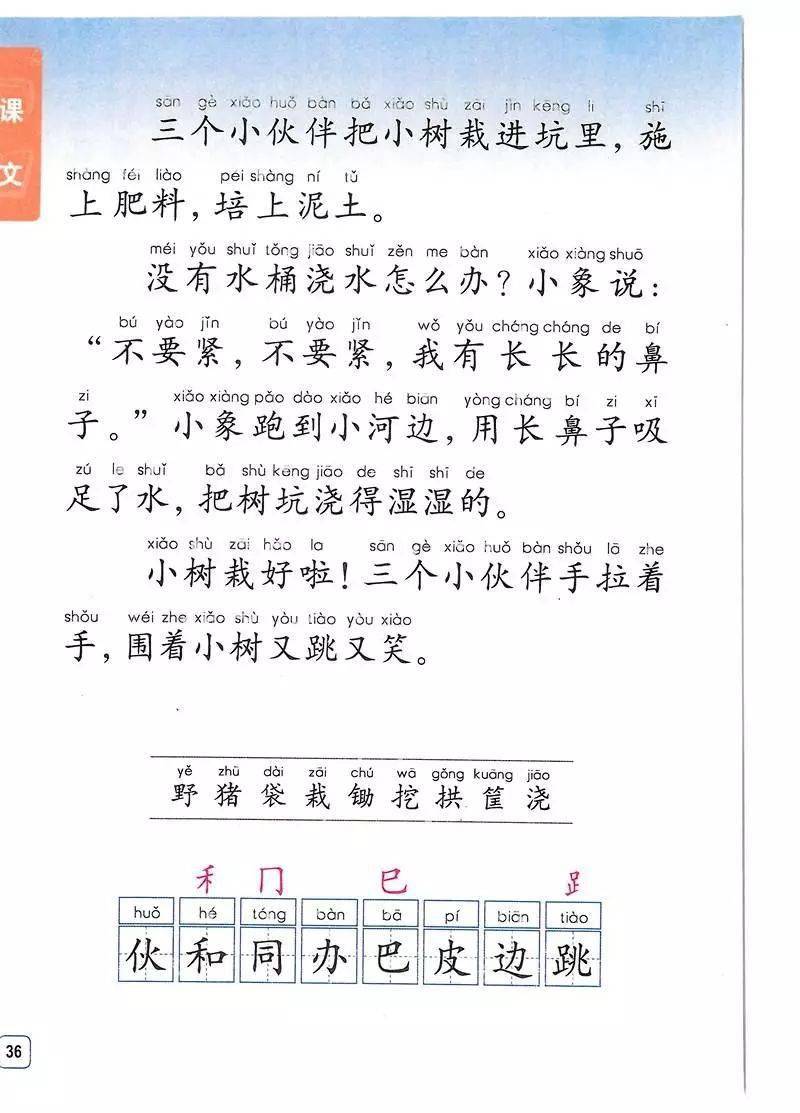 课
文
sān gè xiǎo huǒ bàn bǎ xiǎo shù zāi jìn kēng lǐ shī
三个小伙伴把小树栽进坑里，施
shàng féi liào péi shàng ní tǔ
上肥料，培上泥土。
méi yǒu shuǐ tǒng jiāo shuǐ zěn me bàn xiǎo xiàng shuō
没有水桶浇水怎么办？小象说：
bú yào jǐn bú yào jǐn wǒ yǒu cháng cháng de bí
“不要紧，不要紧，我有长长的鼻
zi xiǎo xiàng pǎo dào xiǎo hé biān yòng cháng bí zi xī
子。”小象跑到小河边，用长鼻子吸
zú le shuǐ bǎ shù kēng jiāo de shī shī de
足了水，把树坑浇得湿湿的。
xiǎo shù zāi hǎo la sān gè xiǎo huǒ bàn shǒu lā zhe
小树栽好啦！三个小伙伴手拉着
shǒu wéi zhe xiǎo shù yòu tiào yòu xiào
手，围着小树又跳又笑。
yě zhū dài zāi chú wā gǒng kuāng jiāo
野 猪 袋 栽 锄 挖 拱 筐 浇
禾 冂 巳 𧾷
huǒ hé tóng bàn bā pí biān tiào
伙 和 同 办 巴 皮 边 跳
36